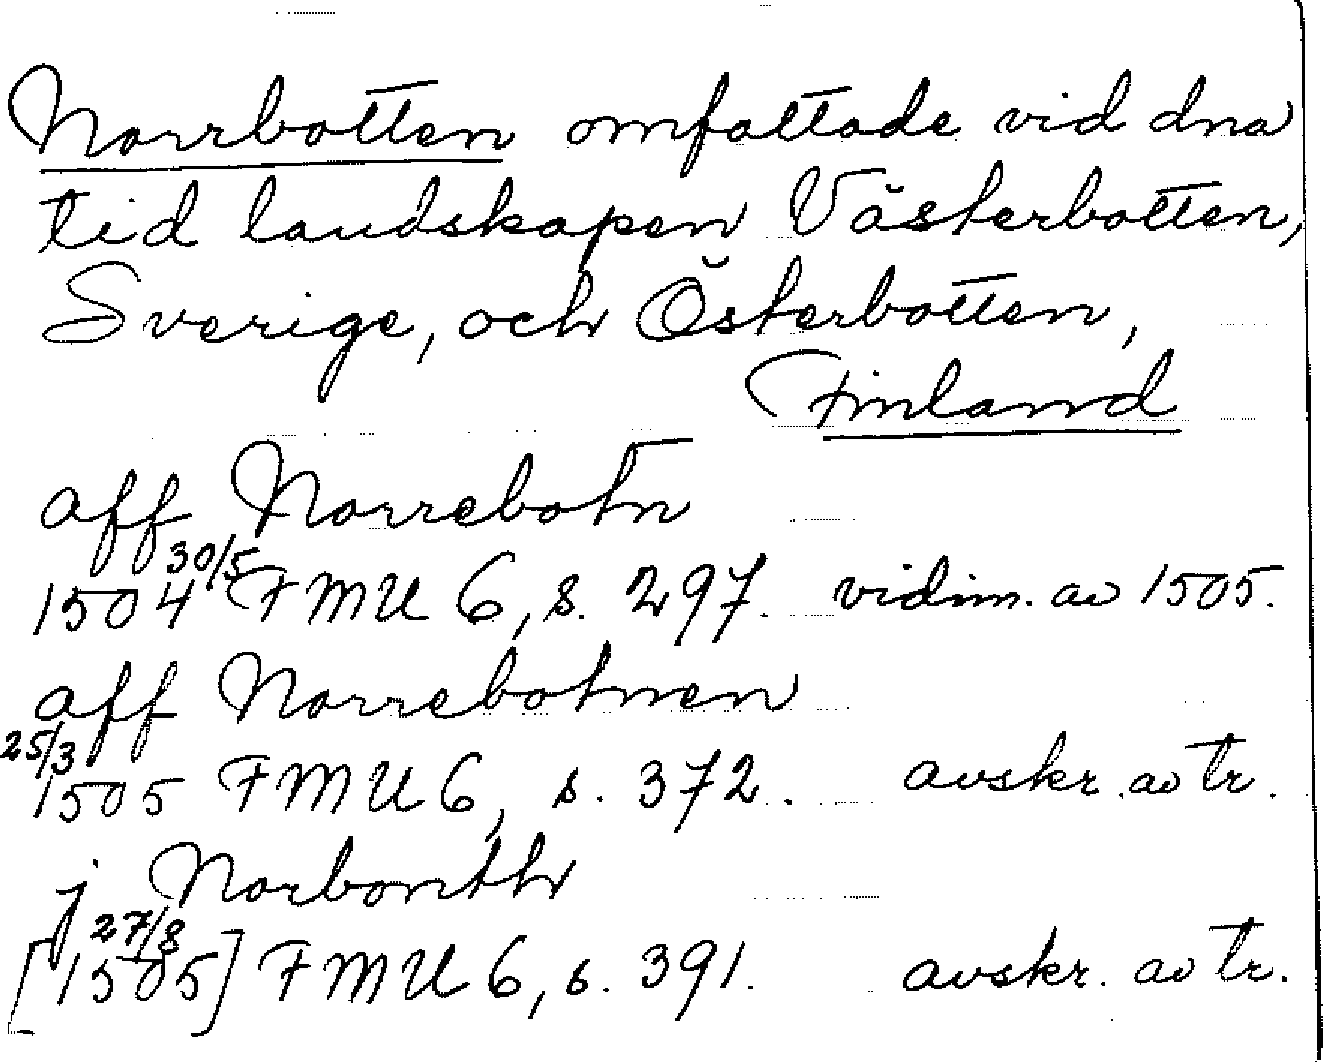 Norrbotten omfattade vid dna
tid landskapen Västerbotten,
Sverige, och Österbotten,
Finland
aff Norrebotn
30/5
1504 FMU 6, s. 297. vidim. av 1505.
aff Norrebotnen
25/3
1505 FMU 6, s. 372. avskr. av tr.
j Norbonthr
27/8
[1505] FMU 6, s. 391. avskr. av tr.